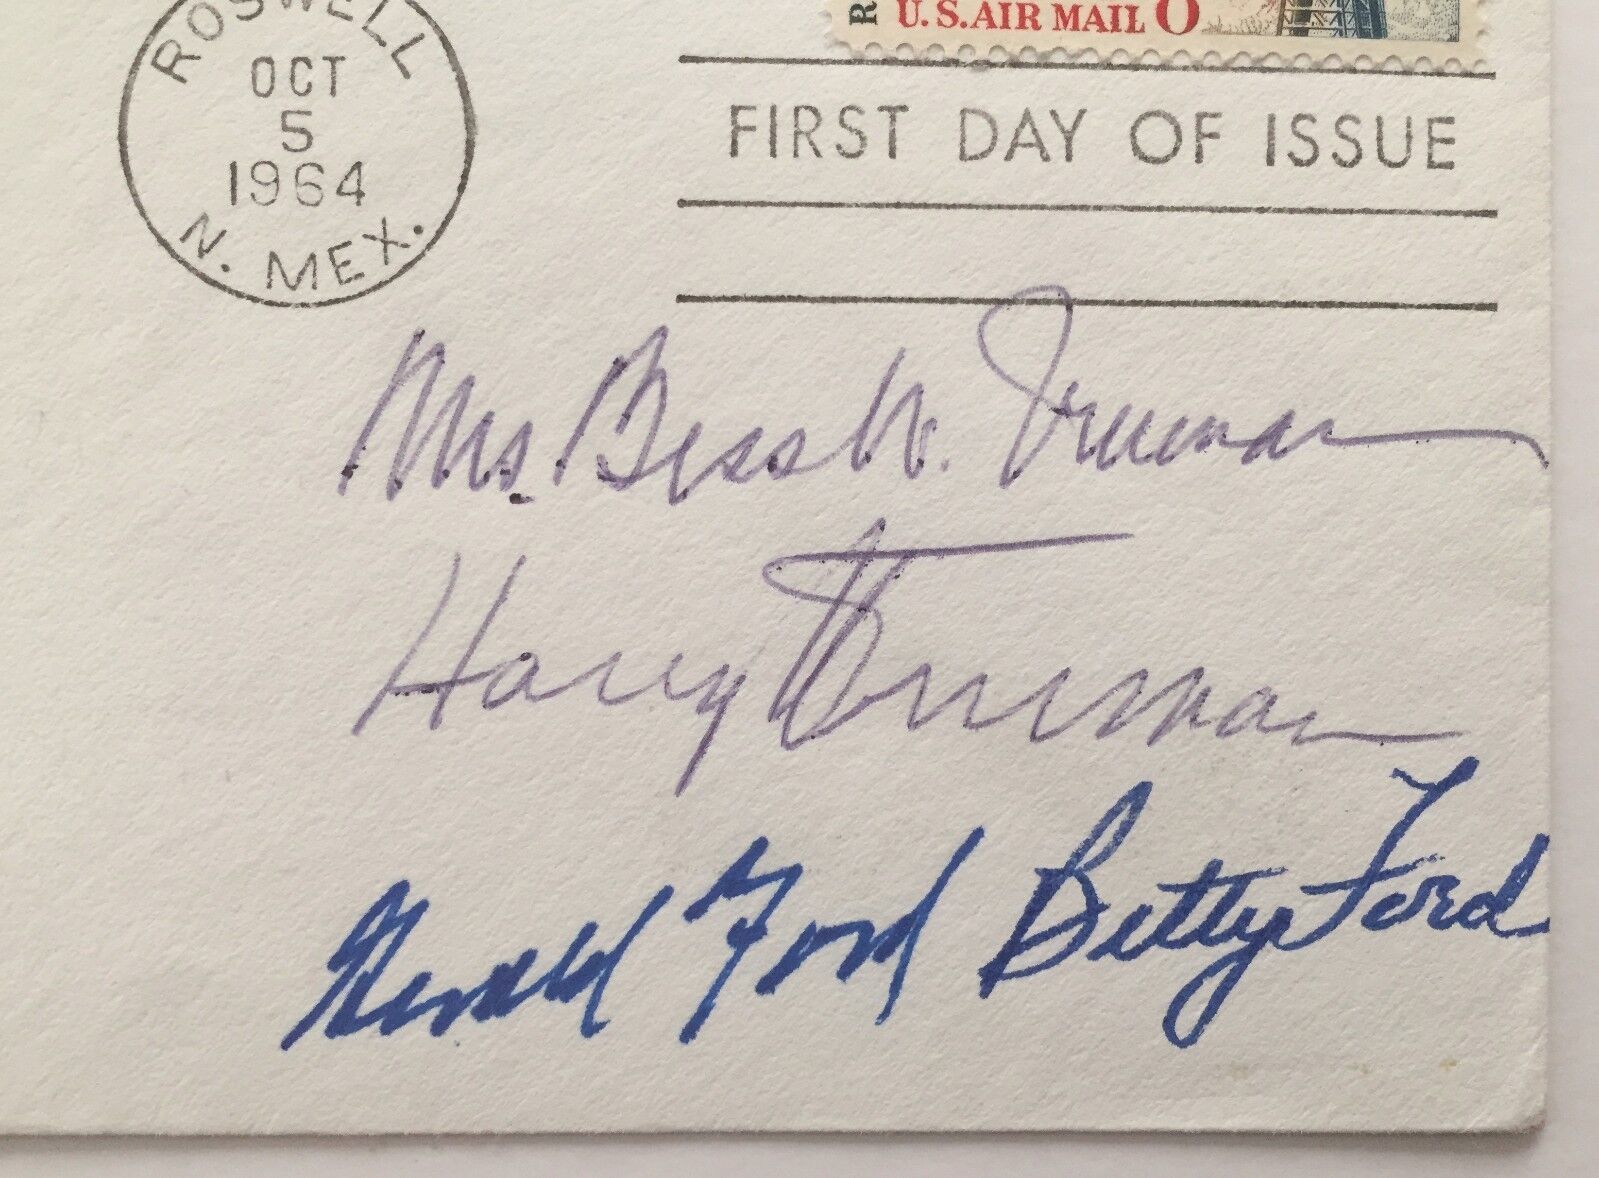 R U.S. AIR MAIL 8
ROSWELL
OCT
5
1964
N. MEX.
FIRST DAY OF ISSUE
Mrs. Bess W. Truman
Harry Truman
Gerald Ford Betty Ford